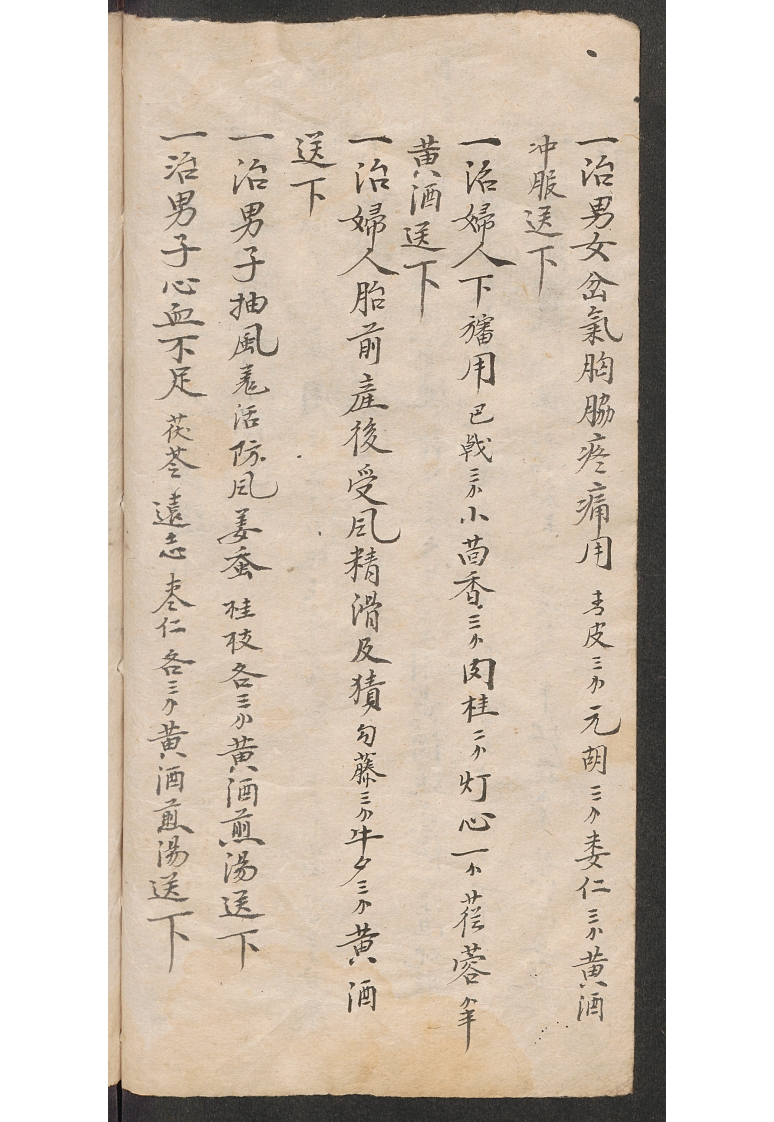 一治男女岔氣胸脇疼痛用青皮三分元胡三分娄仁三分黄酒
冲服送下
一治婦人下㿉用巴戟三分小茴香三分肉桂二分灯心一分蓯蓉分半
黄酒送下
一治婦人胎前産後受风精滑及積勾藤三分牛夕三分黄酒
送下
一治男子抽風羌活防风姜蚕桂枝各三分黄酒煎湯送下
一治男子心血不足茯苓遠志枣仁各三分黄酒煎湯送下